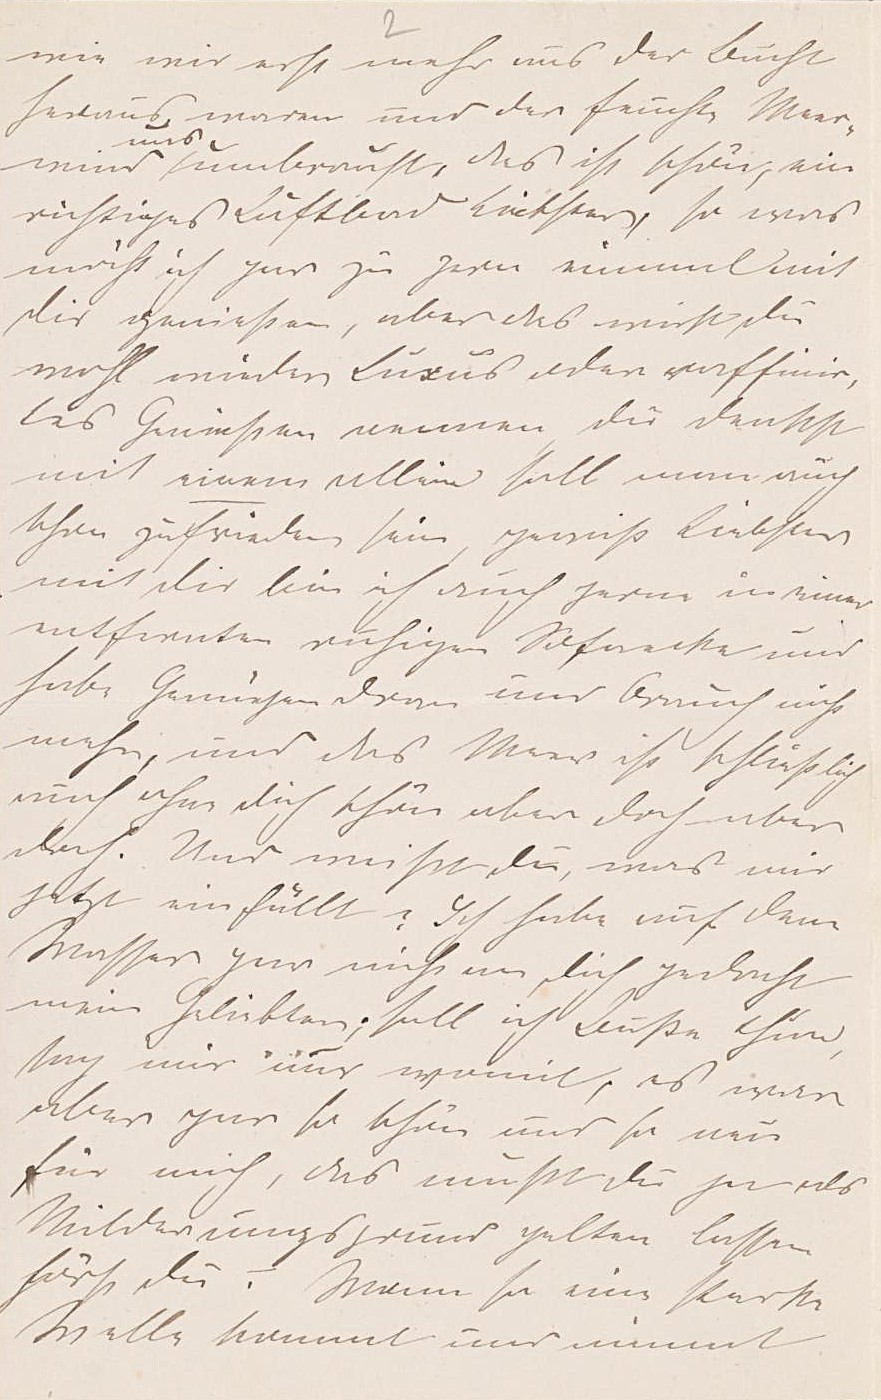 2
wie wir erst mehr aus der Bucht
heraus waren und der feuchte Meer-
wind uns umbraust, das ist schön, ein
richtiges Luftbad Liebster, so was
möcht ich gar zu gern einmal mit
dir genießen, aber das wirst du
wohl wieder Luxus oder raffinir-
tes Genießen nennen, du denkst
mit einem allein soll man auch
schon zufrieden sein, gewiß Liebster
mit dir bin ich auch gerne in einer
entfernten ruhigen Sofaecke und
habe Genügen dran und brauch nichts
mehr, und das Meer ist schließlich
auch ohne dich schön aber doch aber
doch. Und weißt du, was mir
jetzt einfällt? Ich habe auf dem
Wasser gar nicht an dich gedacht
mein Geliebter; soll ich Buße thun,
sag mir nur womit, es war
aber gar so schön und so neu
für mich, das mußt du ja als
Milderungsgrund gelten lassen
hörst du? Wenn so eine starke
Welle kommt und nimmt